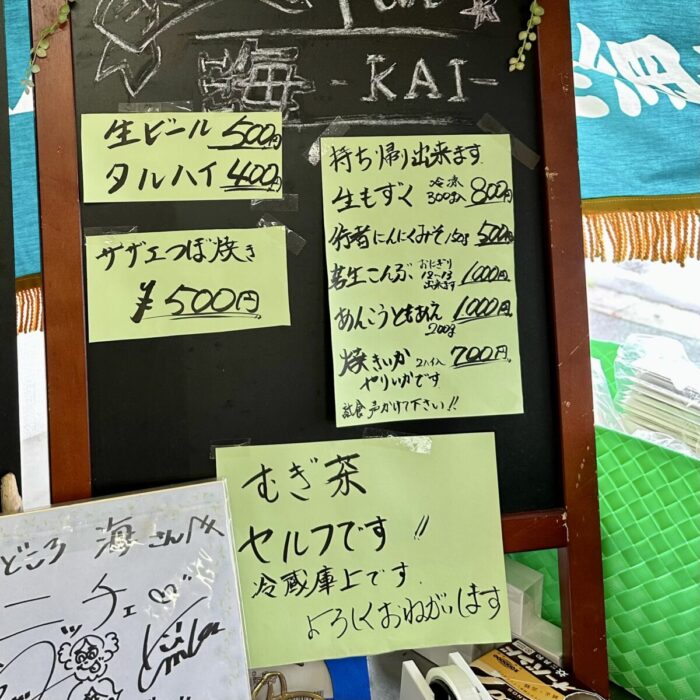 海 -KAI-
生ビール 500円
タルハイ 400円
サザエつぼ焼き
¥500円
持ち帰り出来ます
生もずく 冷凍 300g入 800円
行者にんにくみそ 150g 500円
若生こんぶ おにぎり 12~13 出来ます 1000円
あんこうともあえ 1.000円
200g
焼きいか 2ハイ入 700円
やりいかです
試食 声かけて下さい!!
むぎ茶
セルフです!!
冷蔵庫上です.
よろしくおねがいします
どころ 海さん
ニッチェ